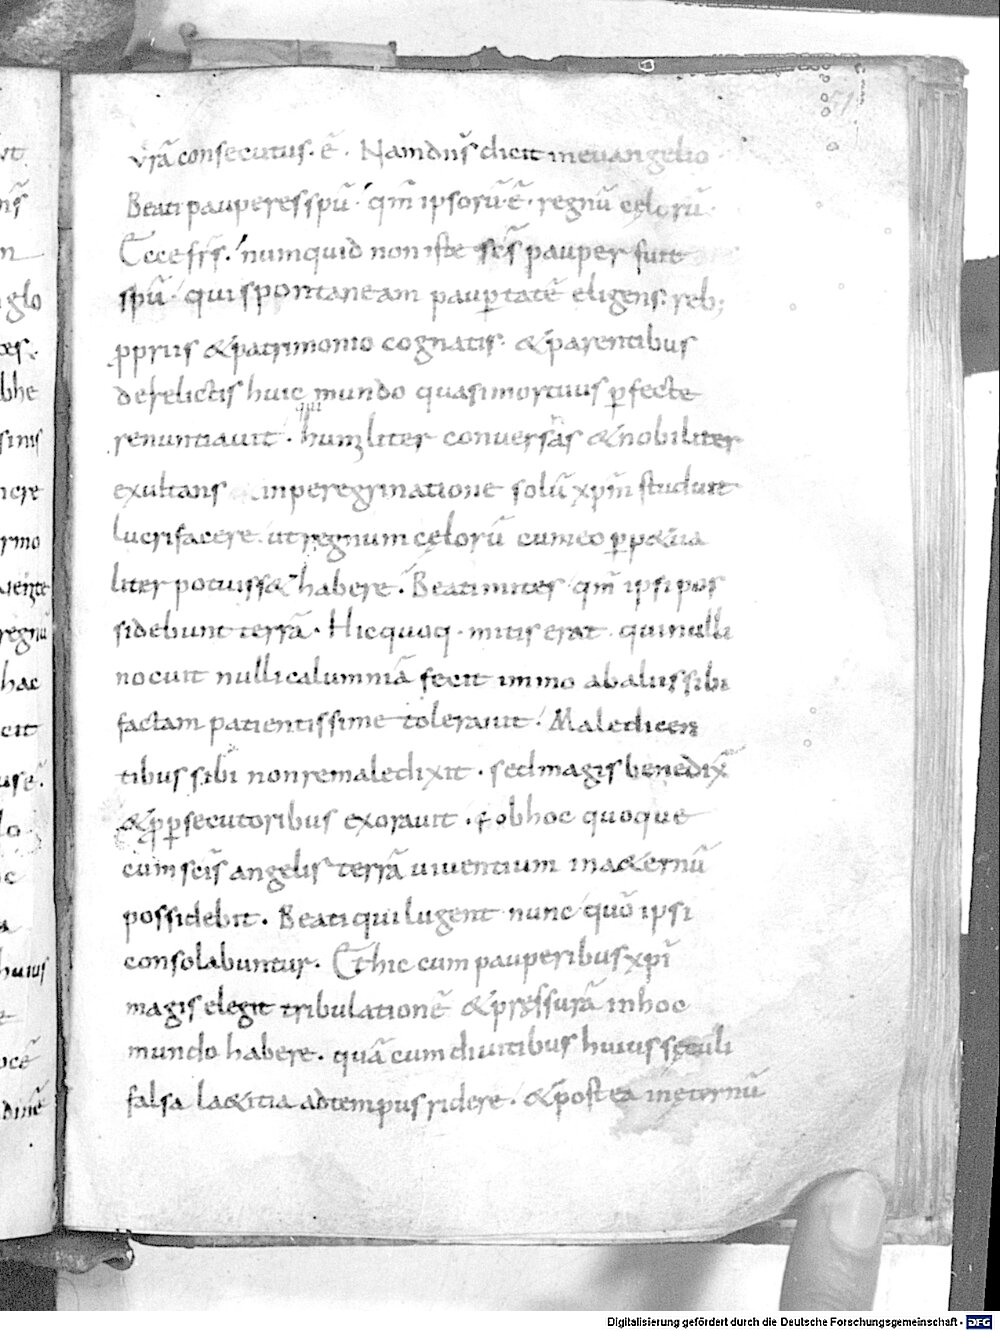 vt
nš
n
glo
bhe
simis
ncre
rmo
regnū
hac
cit
huius
ocē
dinē
51
vrā consecutus . ē . Nam dn̄s dicit in evangelio
Beati pauperes spū . qm̄ ipsorū ē . regnū cęlorū .
Ecce frs̄ . numquid non iste sc̄s pauper fuit
spū . qui spontaneam paup̄tatē eligens . reb;
p̱priis & patrimonio cognatis . & parentibus
derelictis huic mundo quasi mortuus p̄fecte
qui
renuntiavit . humiliter conversās & nobiliter
exultans in peregrinatione solū xp̄m studuit
lucrifacere . ut regnum cęlorū cum eo p̄p&ua
liter potuiss& habere . Beati mites qm̄ ipsi pos
sidebunt terrā . Hic quoq . mitis erat . qui nulli
nocuit nulli calumniā fecit immo ab aliis sibi
factam patientissime toleravit . Maledicen
tibus sibi non remaledixit . sed magis benedix̄
& p̱ p̄secutoribus exoravit . & ob hoc quoque
cum scīs angelis terrā viventium in a&ernū
possidebit . Beati qui lugent nunc quō ipsi
consolabuntur . Et hic cum pauperibus xp̄i
magis elegit tribulationē & pressurā in hoc
mundo habere . quā cum divitibus huius sęculi
falsa la&itia ad tempus ridere . & postea in ęternū
Digitalisierung gefördert durch die Deutsche Forschungsgemeinschaft - DFG